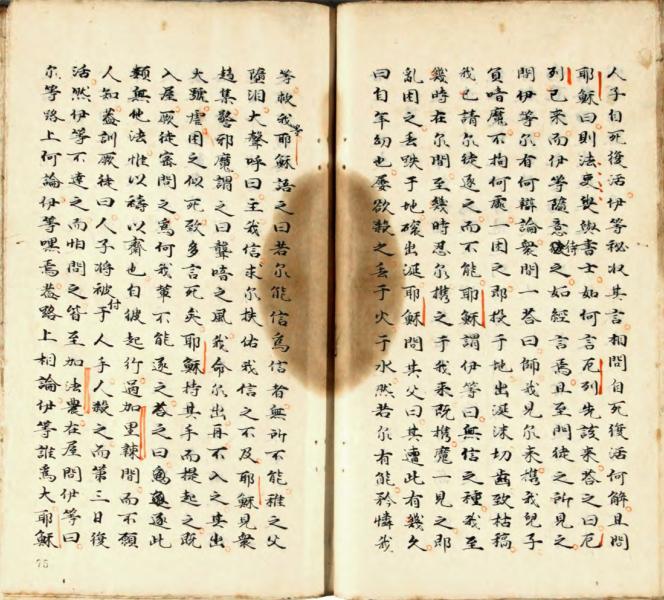 人子自死後活伊等秘收其言相問自死復活何解且問
耶穌曰則法吏與書士如何言厄列先該来荅之曰厄
列已来而伊等隨意待之如經言焉且至門徒之所見之
問伊等尔有何辯論衆間一荅曰師我見尔来携我兒子
負喑魔不拘何處一困之即投于地出涎沫切齒致枯槁
我已請尔徒逐之而不能耶穌謂伊等曰無信之種我至
幾時在尔間至幾時忍尔携之于我来既携魔一見之即
亂困之丢跌于地滾出涎耶穌問其父曰其遭此有幾久
曰自年幼也屡欲殺之丢于火于水然若尔有能矜憐我
等軟我等耶穌語之曰若尔能信焉信者無所不能稚之父
墮泪大聲呼曰主我信求尔扶佑我信之不及耶穌見衆
趋集警邪魔謂之曰聾喑之風我命尔出再不入之其出
大號虐困之似死致多言死矣耶穌持其手而提起之既
入屋厥徒密問之為何我輩不能逐之荅之曰逐此
類無他法惟以禱以齋也自彼起行過加里辣間而不願
人知葢訓厥徒曰人子將被付于人手人殺之而第三日復
活然伊等不達之而怕問之皆至加法農在屋問伊等曰
尔等路上何論伊等嘿焉葢路上相論伊等誰為大耶穌
75